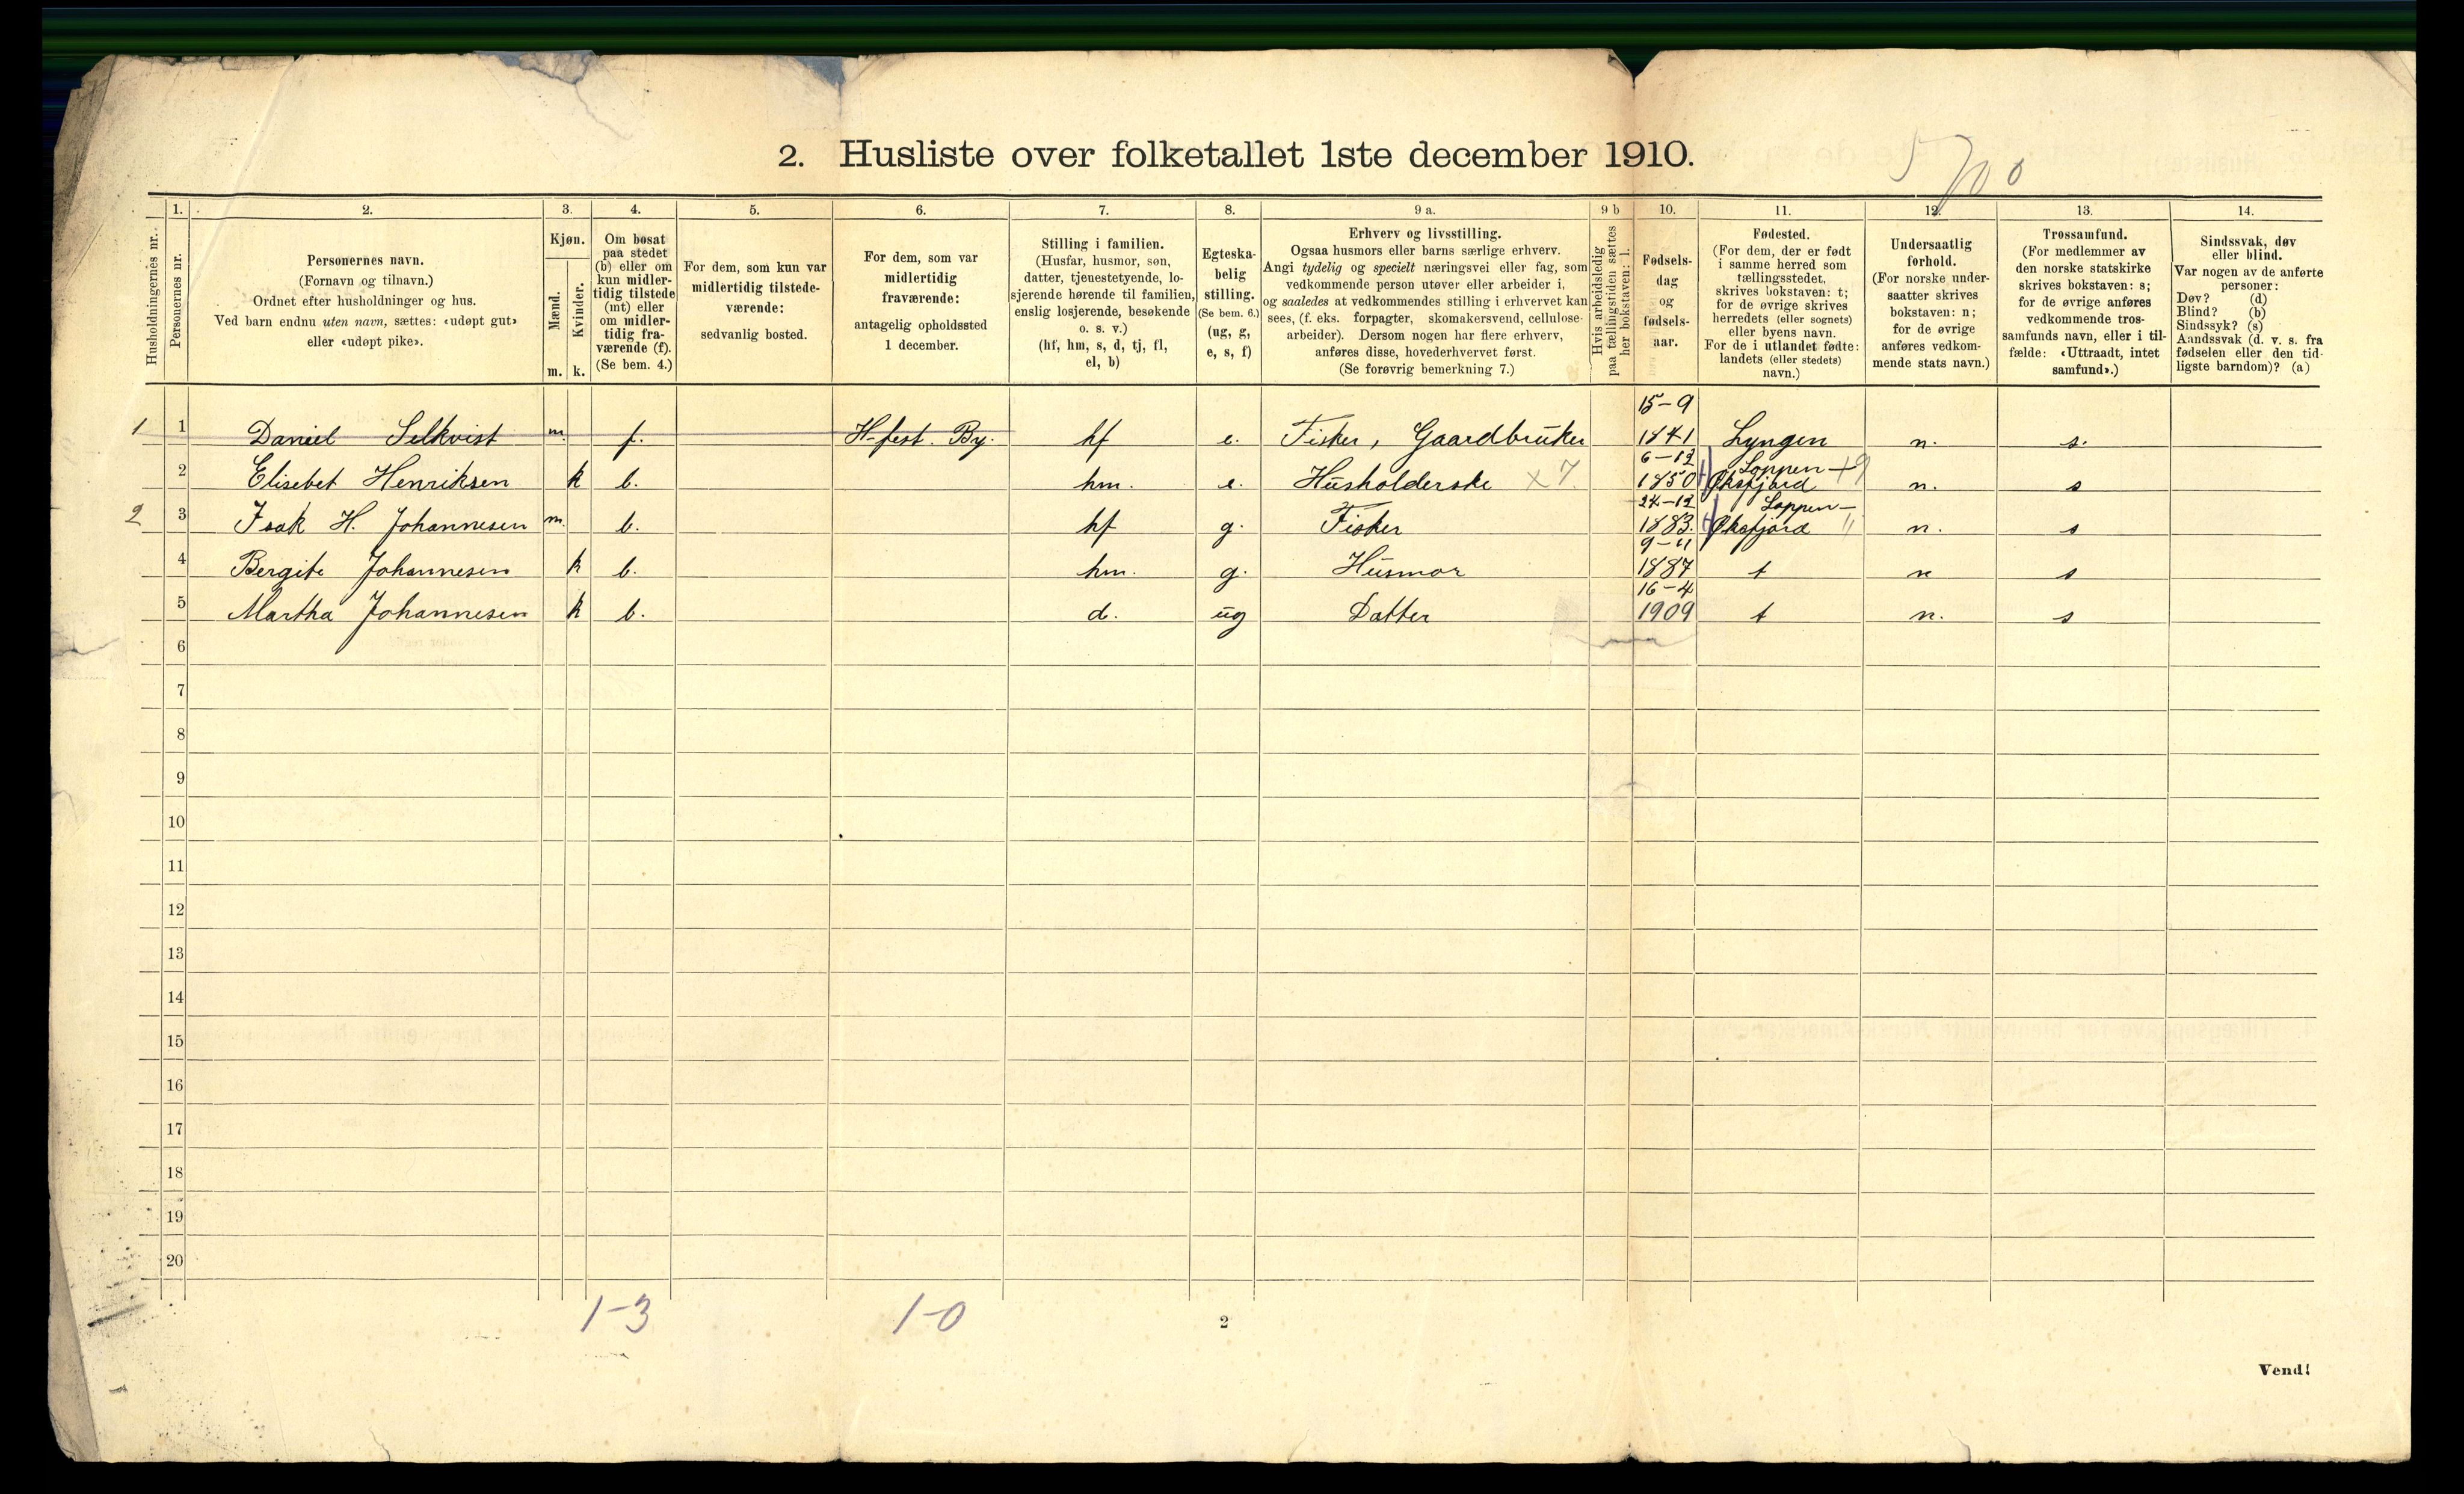 2. Husliste over folketallet 1ste december 1910.
1. 2. 3. 4. 5. 6. 7. 8. 9 a. 9 b 10. 11. 12. 13. 14.
Husholdningernes nr.
Personernes nr.
Personernes navn.
(Fornavn og tilnavn.)
Ordnet efter husholdninger og hus.
Ved barn endnu uten navn, sættes: «udøpt gut»
eller «udøpt pike».
Kjøn.
Mænd.
Kvinder.
m. k.
Om bosat
paa stedet
(b) eller om
kun midler-
tidig tilstede
(mt) eller
om midler-
tidig fra-
værende (f).
(Se bem. 4.)
For dem, som kun var
midlertidig tilstede-
værende:
sedvanlig bosted.
For dem, som var
midlertidig
fraværende:
antagelig opholdssted
1 december.
Stilling i familien.
(Husfar, husmor, søn,
datter, tjenestetyende, lo-
sjerende hørende til familien,
enslig losjerende, besøkende
o. s. v.)
(hf, hm, s, d, tj, fl,
el, b)
Egteska-
belig
stilling.
(Se bem. 6.)
(ug, g,
e, s, f)
Erhverv og livsstilling.
Ogsaa husmors eller barns særlige erhverv.
Angi tydelig og specielt næringsvei eller fag, som
vedkommende person utøver eller arbeider i,
og saaledes at vedkommendes stilling i erhvervet kan
sees, (f. eks. forpagter, skomakersvend, cellulose-
arbeider). Dersom nogen har flere erhverv,
anføres disse, hovederhvervet først.
(Se forøvrig bemerkning 7.)
Hvis arbeidsledig
paa tællingstiden sættes
her bokstaven: l.
Fødsels-
dag
og
fødsels-
aar.
Fødested.
(For dem, der er født
i samme herred som
tællingsstedet,
skrives bokstaven: t;
for de øvrige skrives
herredets (eller sognets)
eller byens navn.
For de i utlandet fødte:
landets (eller stedets)
navn.)
Undersaatlig
forhold.
(For norske under-
saatter skrives
bokstaven: n;
for de øvrige
anføres vedkom-
mende stats navn.)
Trossamfund.
(For medlemmer av
den norske statskirke
skrives bokstaven: s;
for de øvrige anføres
vedkommende tros-
samfunds navn, eller i til-
fælde: «Uttraadt, intet
samfund».)
Sindssvak, døv
eller blind.
Var nogen av de anførte
personer:
Døv? (d)
Blind? (b)
Sindssyk? (s)
Aandssvak (d. v. s. fra
fødselen eller den tid-
ligste barndom)? (a)
15-9
1 1 Daniel Selkvist m. f. H-fest. By. hf e. Fisker, Gaardbruker 1841 Lyngen n. s.
6-12 Loppen - +9
2 Elisebet Henriksen k b. hm. e. Husholderske x 7. 1850 Øksfjord n. s
24-12 Loppen -
2 3 Isak H. Johannesen m. b. hf g. Fisker 1883. Øksfjord " n. s
9-11
4 Bergite Johannesen k b. hm. g. Husmor 1887 t n s
16-4
5 Martha Johannesen k b. d. ug Datter 1909 t n. s
6
7
8
9
10
11
12
13
14
15
16
17
18
19
20
1-3 1-0
2
Vend!